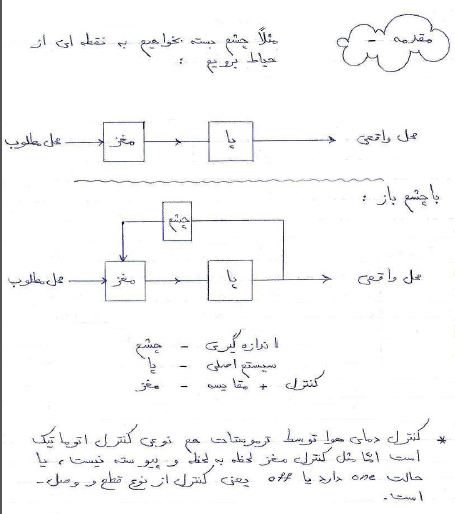 مقدمه -
مثلاً چشم بسته بخواهیم به نقطه ای از
حیاط برویم :
محل مطلوب
مغز
پا
محل واقعی
با چشم باز :
چشم
محل مطلوب
مغز
پا
محل واقعی
اندازه گیری - چشم
سیستم اصلی - پا
کنترل + مقایسه - مغز
* کنترل دمای هوا توسط ترموستات هم نوعی کنترل اتوماتیک
است اما مثل کنترل مغز لحظه به لحظه و پیوسته نیست، یا
حالت one دارد یا off یعنی کنترل از نوع قطع و وصل -
است.